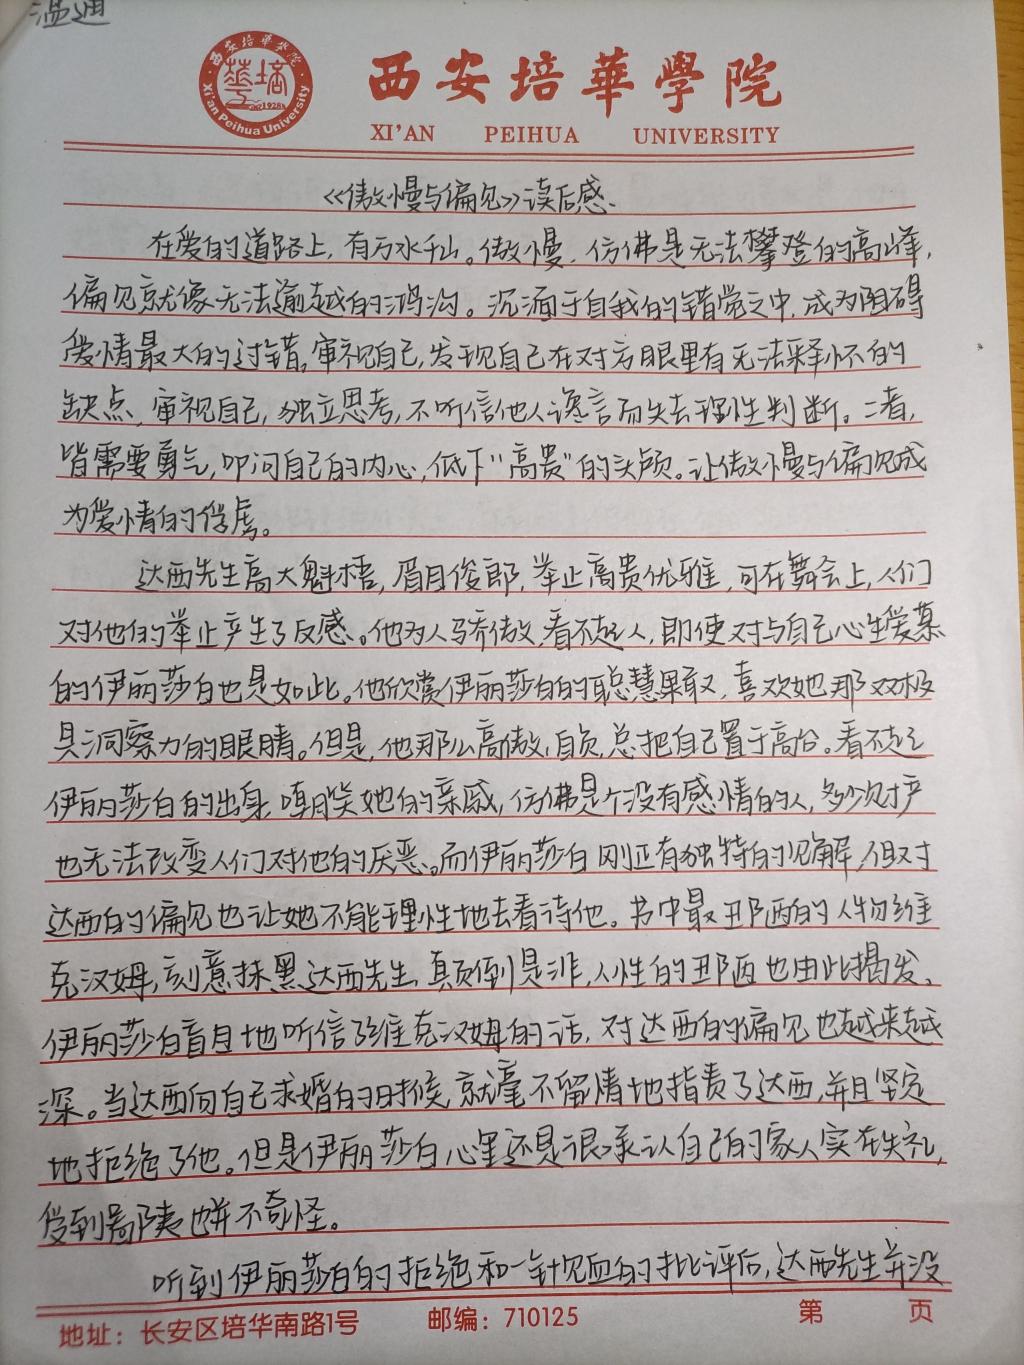 温通
西安培華學院
XI'AN PEIHUA UNIVERSITY
西安培华学院
Xi'an Peihua University
1928
《傲慢与偏见》读后感、
在爱的道路上,有万水千山。傲慢,仿佛是无法攀登的高峰,
偏见就像无法逾越的鸿沟。沉湎于自我的错觉之中,成为阻碍
爱情最大的过错。审视自己,发现自己在对方眼里有无法释怀的
缺点,审视自己,独立思考,不听信他人谗言而失去理性判断。二者,
皆需要勇气,叩问自己的内心,低下“高贵”的头颅。让傲慢与偏见成
为爱情的俘虏。
达西先生高大魁梧,眉目俊郎,举止高贵优雅,可在舞会上,人们
对他的举止产生了反感。他为人骄傲,看不起人,即使对与自己心生爱慕
的伊丽莎白也是如此。他欣赏伊丽莎白的聪慧果敢,喜欢她那双极
具洞察力的眼睛。但是,他那么高傲,自负,总把自己置于高台。看不起
伊丽莎白的出身,嘲笑她的亲戚,仿佛是个没有感情的人,多少财产
也无法改变人们对他的厌恶。而伊丽莎白刚正有独特的见解,但对
达西的偏见也让她不能理性地去看待他。书中最丑陋的人物维
克汉姆,刻意抹黑达西先生,颠倒是非,人性的丑陋也由此揭发、
伊丽莎白盲目地听信了维克汉姆的话,对达西的偏见也越来越
深。当达西向自己求婚的时候,就毫不留情地指责了达西,并且坚定
地拒绝了他。但是伊丽莎白心里还是很承认自己的家人实在失礼,
受到鄙陋也并不奇怪。
听到伊丽莎白的拒绝和一针见血的批评后,达西先生并没
地址：长安区培华南路1号 邮编：710125 第 页